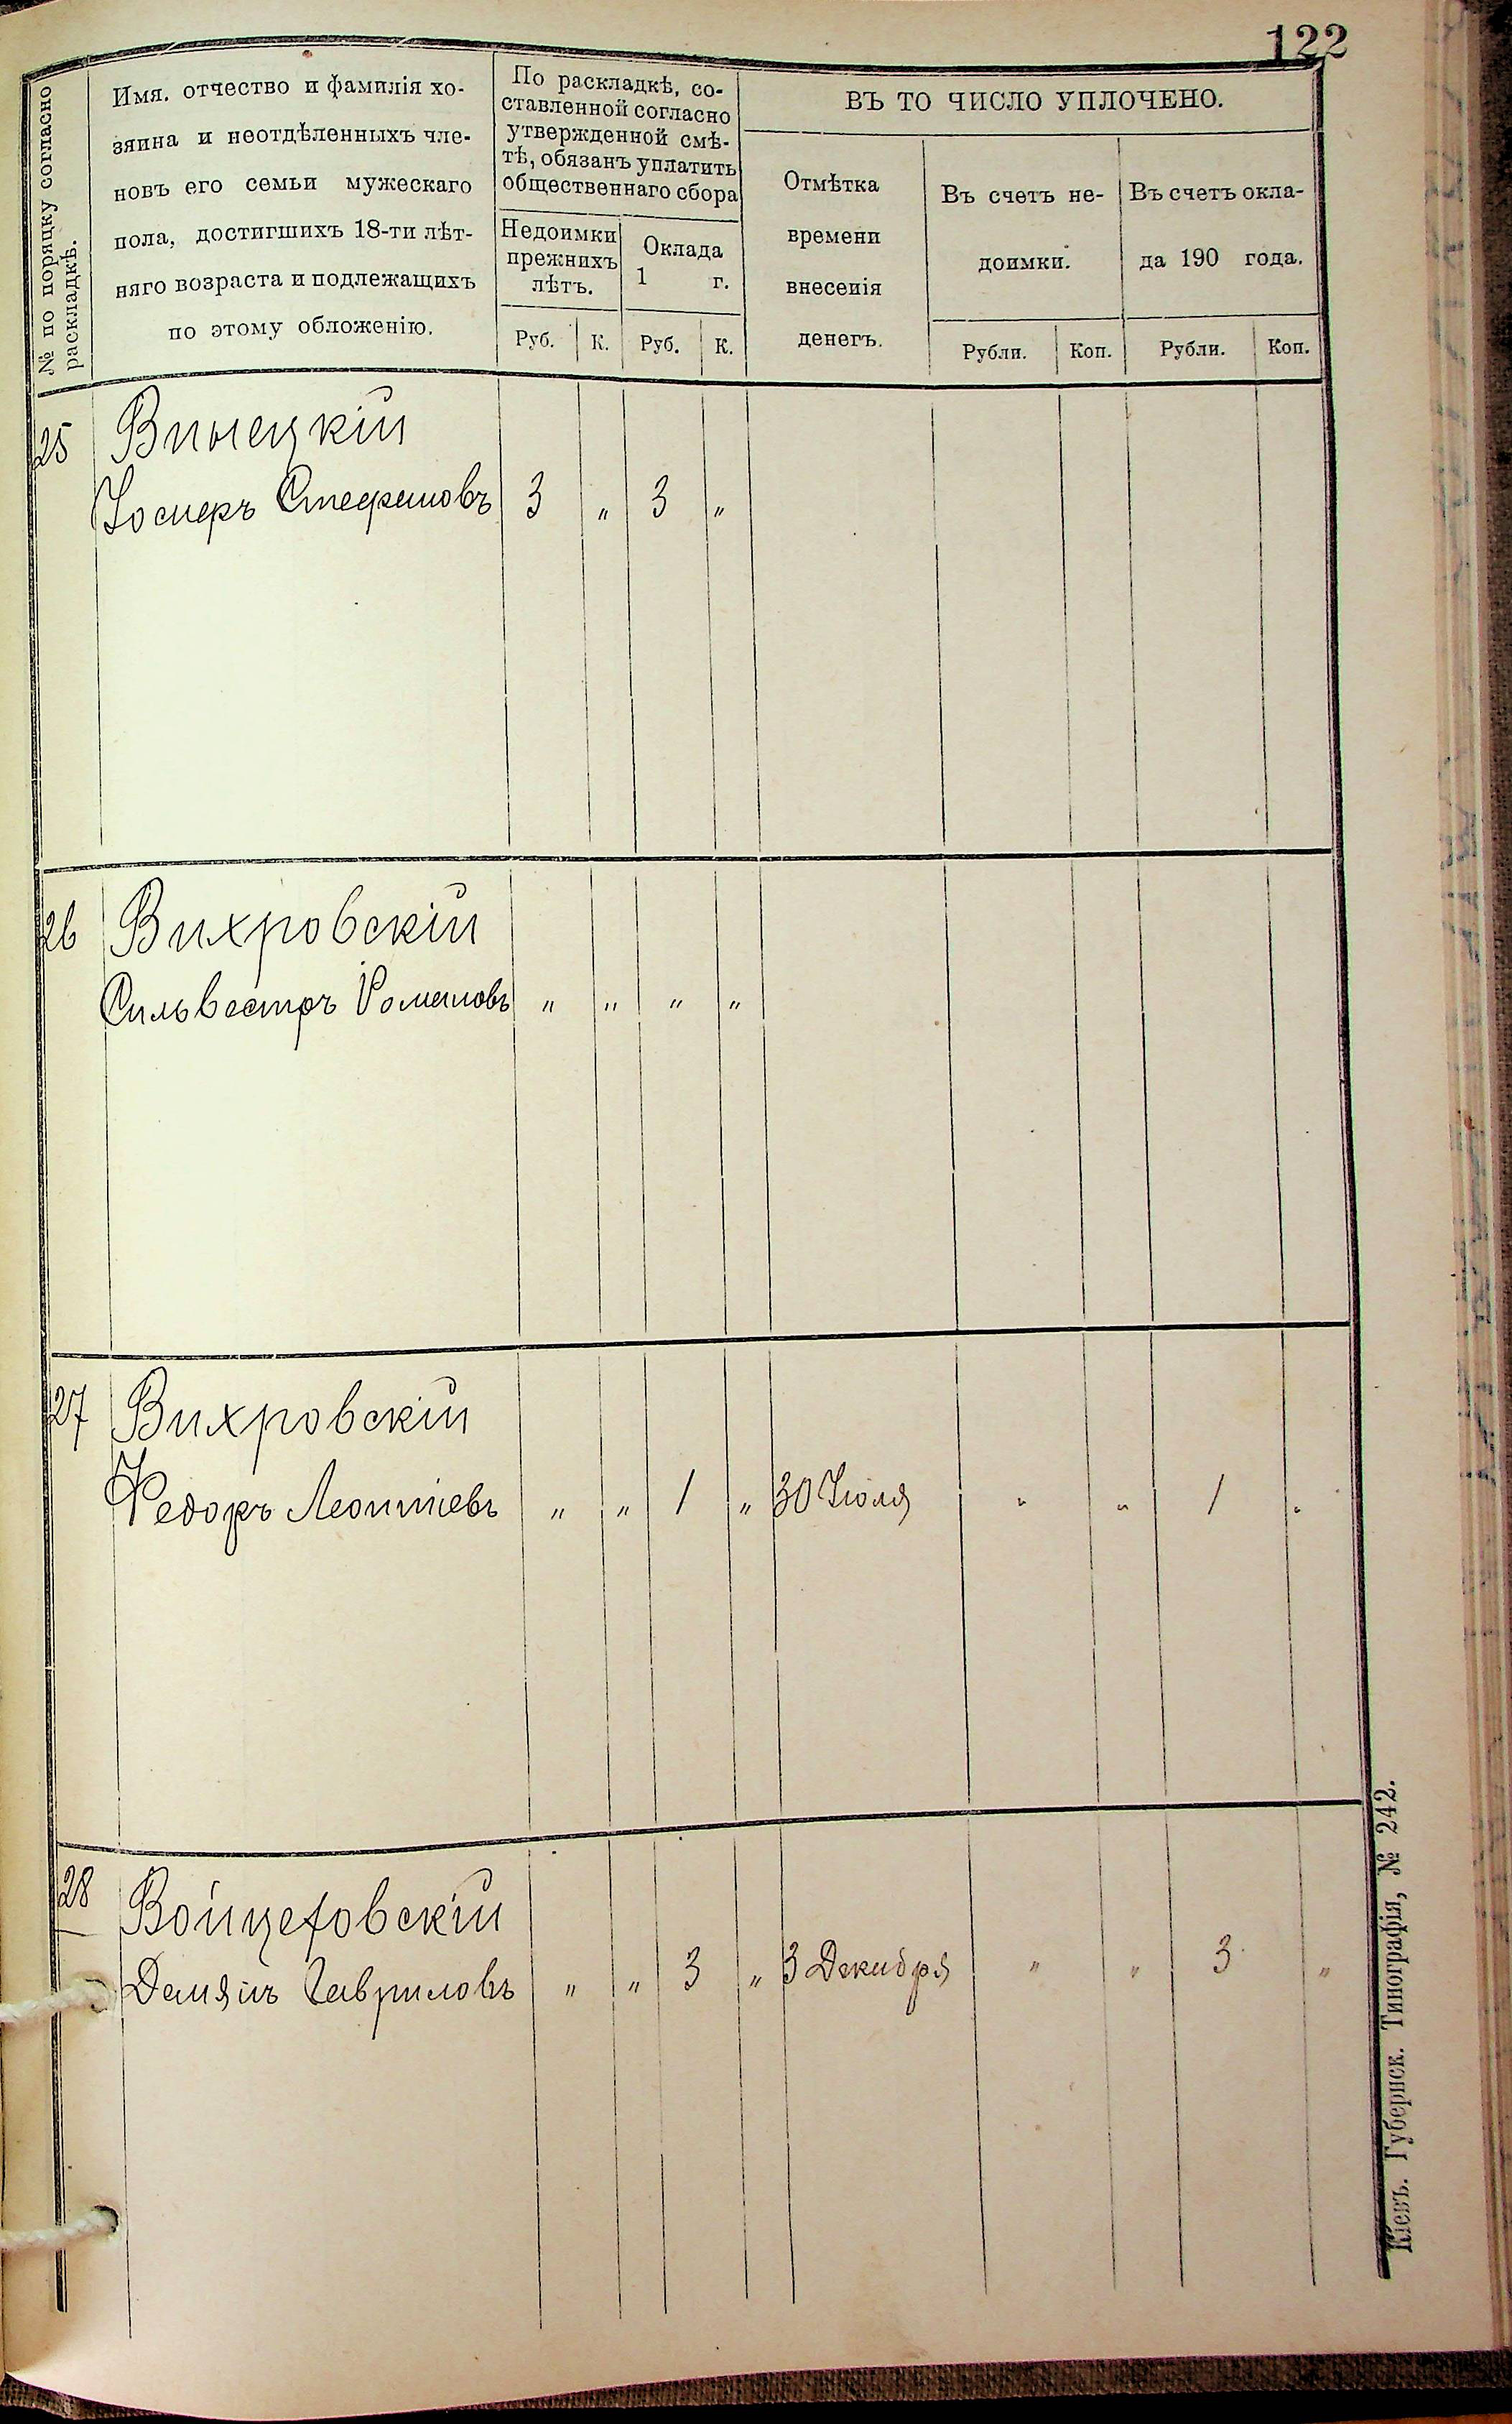 122
№ по порядку согласно
раскладкѣ.
Имя. отчество и фамилія хо-
зяина и неотдѣленныхъ чле-
новъ его семьи мужескаго
пола, достигшихъ 18-ти лѣт-
няго возраста и подлежащихъ
по этому обложенію.
По раскладкѣ, со-
ставленной согласно
утвержденной смѣ-
тѣ, обязанъ уплатить
общественнаго сбора
Недоимки
прежнихъ
лѣтъ.
Оклада
1 г.
Руб. К. Руб. К.
ВЪ ТО ЧИСЛО УПЛОЧЕНО.
Отмѣтка
времени
внесенія
денегъ.
Въ счетъ не-
доимки.
Въ счетъ окла-
да 190 года.
Рубли. Коп. Рубли. Коп.
25 Виыецкій
Іосифъ Стефановъ 3 „ 3 „
26 Вихровскій
Сильвестръ Романовъ „ „ „ „
27 Вихровскій
Федоръ Леонтіевъ „ „ 1 „ 30 Іюля „ „ 1 „
28 Войцеховскій
Демянъ Гавриловъ „ „ 3 „ 3 Декабря „ „ 3 „
Кіевъ. Губернск. Типографія, № 242.